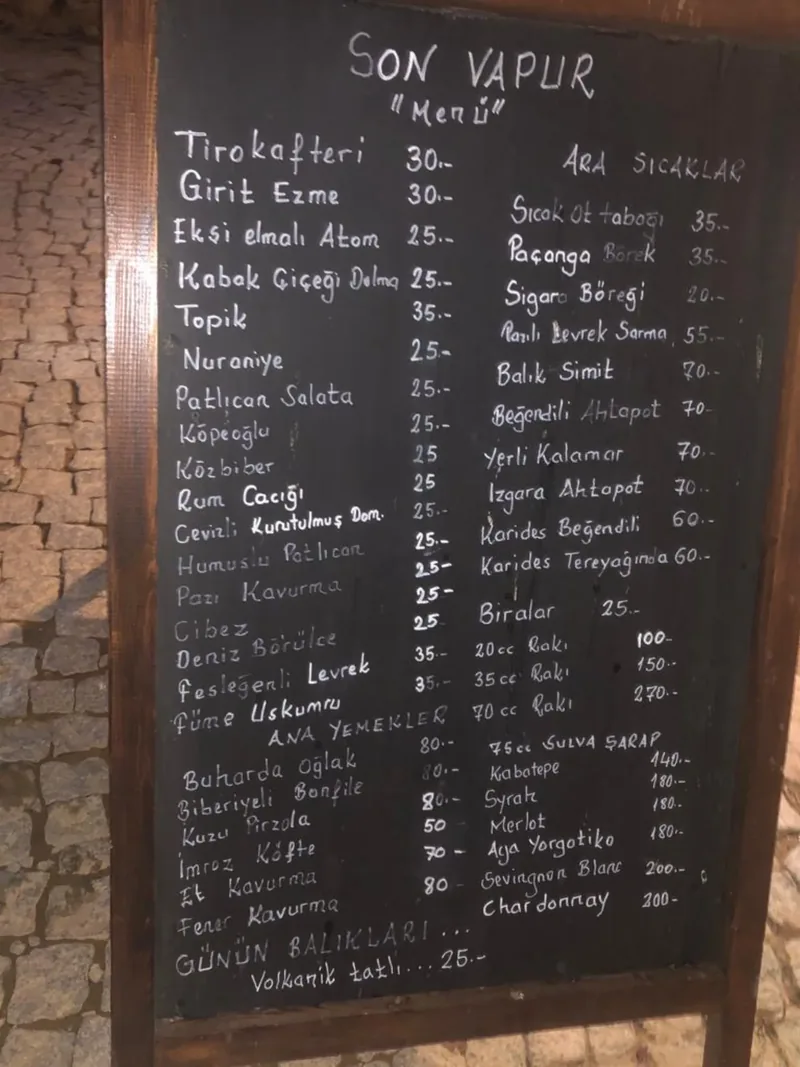 SON VAPUR
"Menü"
Tirokafteri 30.-
Girit Ezme 30.-
Ekşi elmalı Atom 25.-
Kabak Çiçeği Dolma 25.-
Topik 35.-
Nuraniye 25.-
Patlıcan Salata 25.-
Köpeoğlu 25.-
Közbiber 25
Rum Cacığı 25
Cevizli Kurutulmuş Dom. 25.-
Humuslu Patlıcan 25.-
Pazı Kavurma 25-
Cibez 25-
Deniz Börülce 25
Fesleğenli Levrek 35.-
Füme Uskumru 35.-
ANA YEMEKLER
Buharda Oğlak 80.-
Biberiyeli Bonfile 80.-
Kuzu Pirzola 80.-
İmroz Köfte 50
Et Kavurma 70 -
Fener Kavurma 80 -
GÜNÜN BALIKLARI...
Volkanik tatlı... 25.-
ARA SICAKLAR
Sıcak Ot tabağı 35.-
Paçanga Börek 35.-
Sigara Böreği 20.-
Pazılı Levrek Sarma 55.-
Balık Simit 70.-
Beğendili Ahtapot 70-
Yerli Kalamar 70.-
Izgara Ahtapot 70.-
Karides Beğendili 60.-
Karides Tereyağında 60.-
Biralar 25.-
20cc Rakı 100-
35 cc Rakı 150.-
70 cc Rakı 270.-
75cc SULVA ŞARAP
Kabatepe 140.-
Syrah 180.-
Merlot 180.-
Aya Yorgotiko 180.-
Sevingnon Blanc 200.-
Chardonnay 200-